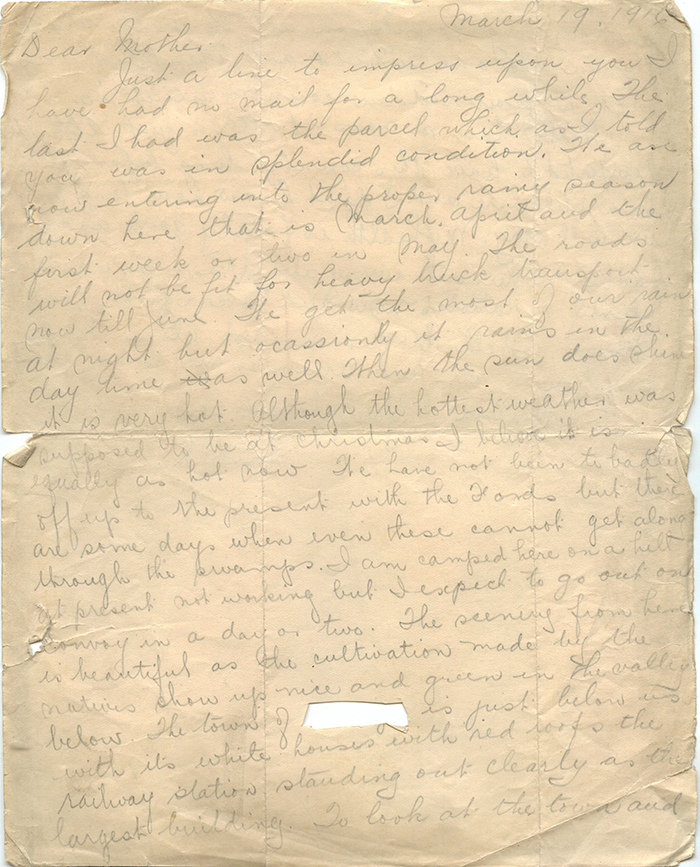 March 19. 191
Dear Mother.
Just a line to impress upon you I
have had no mail for a long while. The
last I had was the parcel which, as I told
you was in splendid condition. We are
now entering into the proper rainy season
down here that is March, April and the
first week or two in May. The roads
will not be fit for heavy truck transport
now till June. We get the most of our rain
at night but ocassionly it rains in the
day time as well. When the sun does shine
it is very hot. Although the hottest weather was
supposed to be at Christmas I believe it is
equally as hot now. We have not been to badly
off up to the present with the Fords but there
are some days when even these cannot get along
through the swamps. I am camped here on a hill
at present not working but I expect to go out on
convoy in a day or two. The scenery from here
is beautiful as the cultivation made by the
natives show up nice and green in the valley
below. The town of is just below us
with its white houses with red roofs the
railway station standing out clearly as the
largest building. To look at the town and